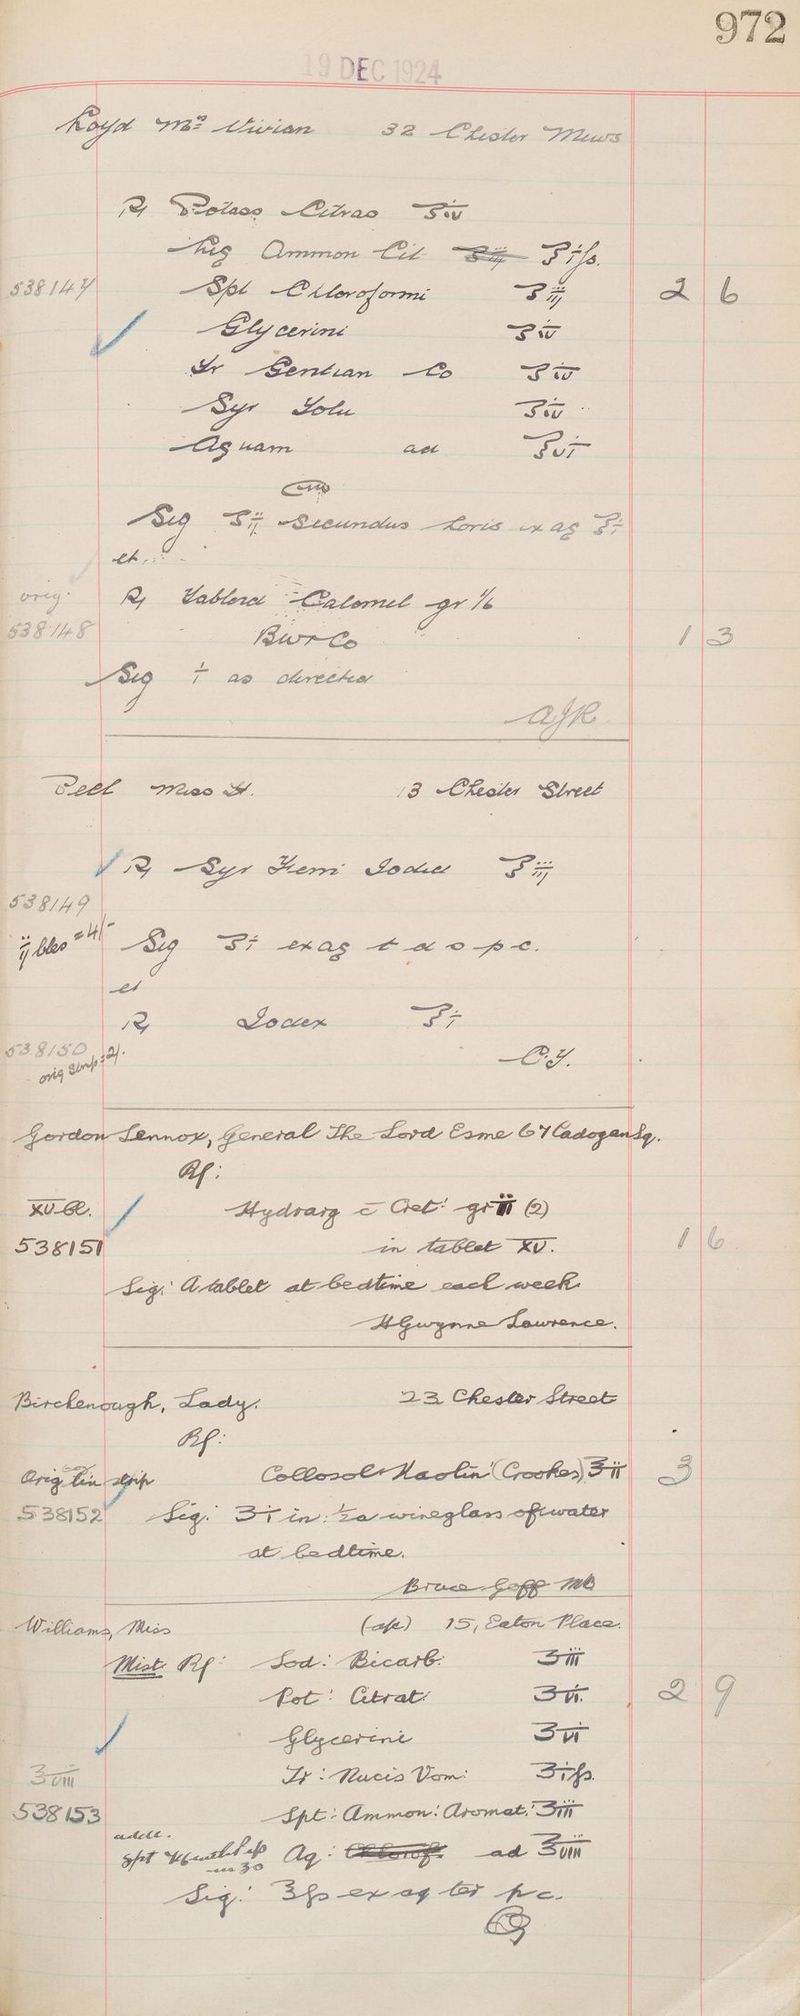 972
19 DEC 1924
Loyd Mrs Vivian 32 Chester Mews
℞ Potass Citras ʒiv
Liq Ammon Cit ℥iſs.
538147 Spt Chloroformi ʒiij 2 6
Glycerini ʒiv
Tr Gentian Co ʒiv
Syr Tolu ʒiv
Aquam ad ℥vi
Sig ʒij secundus horis ex aq ℥i
et
orig. ℞ Tabloid Calomel gr 1/6
538148 BW&Co 1 3
Sig i as directed
AJR
Peel Miss H. 13 Chester Street
℞ Syr Ferri Iodid ℥iij
538149
ij bles = 4/- Sig ʒi ex aq t d s p c.
et
℞ Iodex ℥i
538150 C.Y.
orig Stmp = 2/.
Gordon Lennox, General The Lord Esme 67 Cadogan Sq.
Rf:
XV Bl. Hydrarg c̄ Cret: gr iii (2)
538151 in tablet XV. 1 6
Sig: A tablet at bedtime each week
H Gwynne Lawrence.
Birchenough, Lady. 23 Chester Street
Rf:
Orig tin strip Collosol Kaolin (Crookes) ℥ii 3
538152 Sig: ʒi in ½ a wineglass of water
at bedtime.
Bruce Goff MB
Williams, Miss 15, Eaton Place.
Mist Rf: Sod: Bicarb: ʒiii
Pot: Citrat: ʒvi. 2 9
Glycerini ʒvi
℥viii Tr: Nucis Vom: ʒiſs.
538153 Spt: Ammon: Aromat: ʒiii
adde.
Spt Menth Pip Aq: Chlorof. ad ℥viii
m 30
Sig: ℥ſs ex aq ter p c.